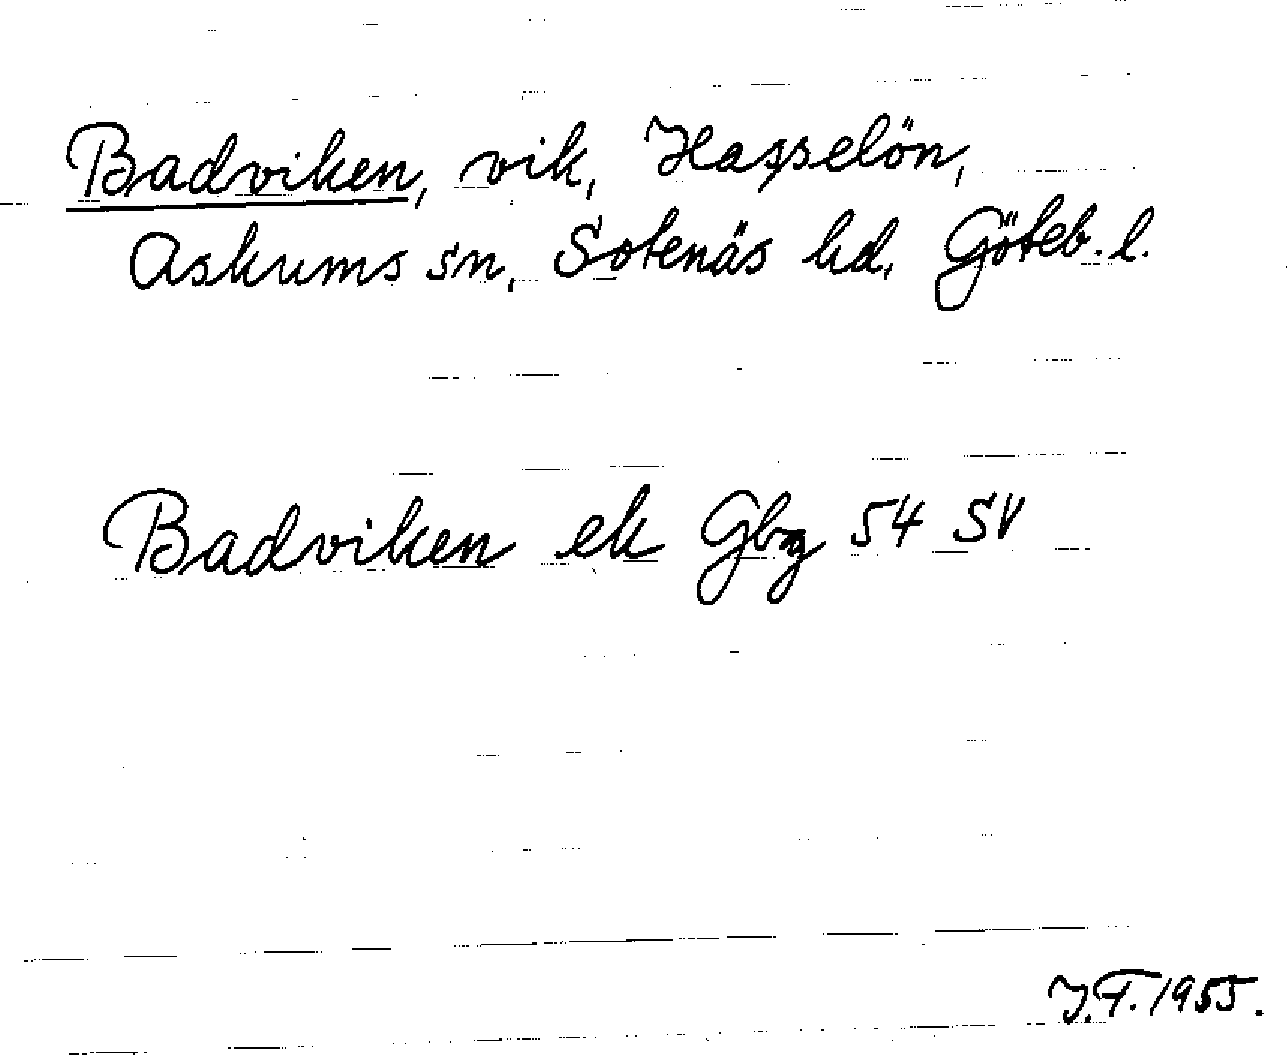 Badviken, vik, Hasselön,
Askums sn, Sotenäs hd, Göteb. l.
Badviken ek Gbg 54 SV
J.T. 1955.